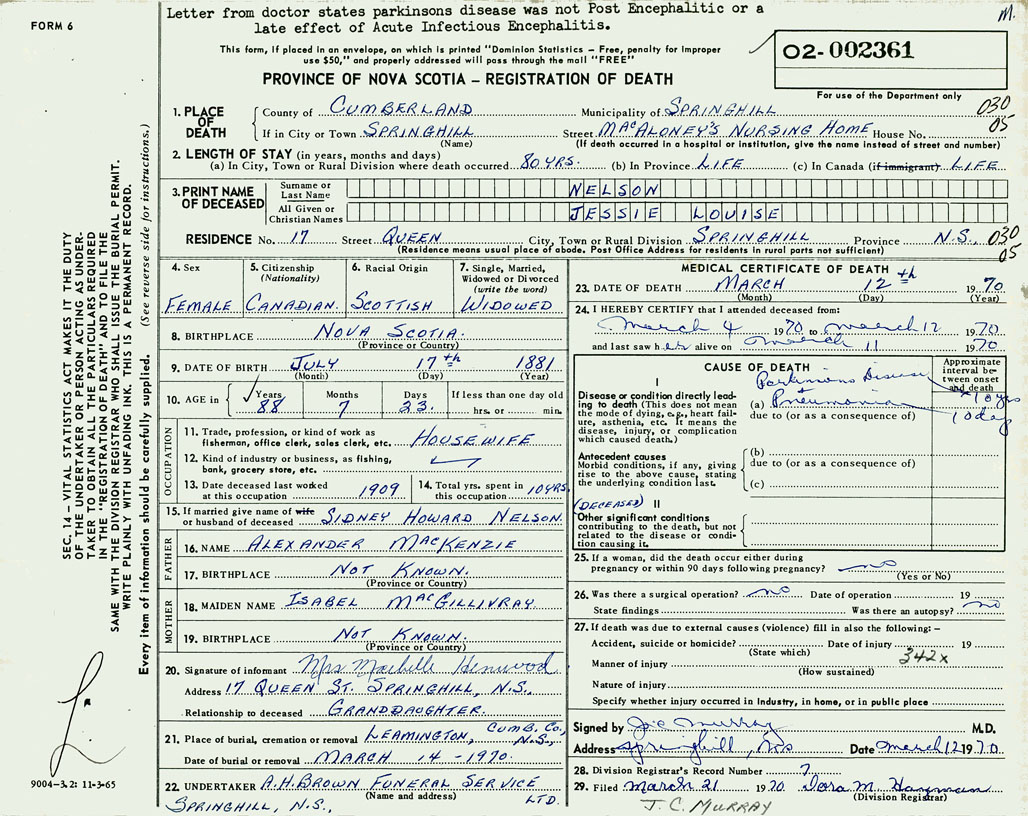 Letter from doctor states parkinsons disease was not Post Encephalitic or a
late effect of Acute Infectious Encephalitis.
M.
FORM 6
This form, if placed in an envelope, on which is printed "Dominion Statistics – Free, penalty for improper
use $50," and properly addressed will pass through the mail "FREE"
02-002361
For use of the Department only
PROVINCE OF NOVA SCOTIA – REGISTRATION OF DEATH
1. PLACE OF DEATH
County of CUMBERLAND Municipality of SPRINGHILL 030
If in City or Town SPRINGHILL Street MACALONEY'S NURSING HOME House No. 05
(Name) (If death occurred in a hospital or institution, give the name instead of street and number)
2. LENGTH OF STAY (in years, months and days)
(a) In City, Town or Rural Division where death occurred 80 YRS. (b) In Province LIFE (c) In Canada (if immigrant) LIFE
3. PRINT NAME OF DECEASED
Surname or Last Name NELSON
All Given or Christian Names JESSIE LOUISE
RESIDENCE No. 17 Street QUEEN City, Town or Rural Division SPRINGHILL Province N.S., 030
(Residence means usual place of abode. Post Office Address for residents in rural parts not sufficient) 05
4. Sex 5. Citizenship (Nationality) 6. Racial Origin 7. Single, Married, Widowed or Divorced (write the word)
FEMALE CANADIAN. SCOTTISH WIDOWED
8. BIRTHPLACE NOVA SCOTIA.
(Province or Country)
9. DATE OF BIRTH JULY 17th 1881
(Month) (Day) (Year)
10. AGE in Years Months Days If less than one day old
88 7 23. hrs. or min.
OCCUPATION
11. Trade, profession, or kind of work as
fisherman, office clerk, sales clerk, etc. HOUSEWIFE
12. Kind of industry or business, as fishing,
bank, grocery store, etc.
13. Date deceased last worked
at this occupation 1909
14. Total yrs. spent in
this occupation 10 YRS.
15. If married give name of wife
or husband of deceased SIDNEY HOWARD NELSON. (DECEASED)
FATHER
16. NAME ALEXANDER MACKENZIE
17. BIRTHPLACE NOT KNOWN.
(Province or Country)
MOTHER
18. MAIDEN NAME ISABEL MACGILLIVRAY.
19. BIRTHPLACE NOT KNOWN.
(Province or Country)
20. Signature of informant Mrs Henwood
Address 17 QUEEN ST. SPRINGHILL, N.S.,
Relationship to deceased GRANDDAUGHTER.
21. Place of burial, cremation or removal LEAMINGTON, CUMB. CO., N.S.,
Date of burial or removal MARCH 14 - 1970.
22. UNDERTAKER A.H. BROWN FUNERAL SERVICE LTD.
(Name and address)
SPRINGHILL, N.S.,
MEDICAL CERTIFICATE OF DEATH
23. DATE OF DEATH MARCH 12th 1970
(Month) (Day) (Year)
24. I HEREBY CERTIFY that I attended deceased from:
March 4 1970 to March 12 1970
and last saw her alive on March 11 1970
CAUSE OF DEATH
Approximate interval between onset and death
I
Parkinsons Disease 10 yrs
Disease or condition directly leading to death (This does not mean the mode of dying, e.g., heart failure, asthenia, etc. It means the disease, injury, or complication which caused death.)
(a) Pneumonia 10 day
due to (or as a consequence of)
Antecedent causes
Morbid conditions, if any, giving rise to the above cause, stating the underlying condition last.
(b)
due to (or as a consequence of)
(c)
II
Other significant conditions contributing to the death, but not related to the disease or condition causing it.
25. If a woman, did the death occur either during
pregnancy or within 90 days following pregnancy? no
(Yes or No)
26. Was there a surgical operation? no Date of operation 19
State findings Was there an autopsy? no
27. If death was due to external causes (violence) fill in also the following: –
Accident, suicide or homicide? Date of injury 19
(State which) 342x
Manner of injury
(How sustained)
Nature of injury
Specify whether injury occurred in Industry, in home, or in public place
Signed by J. C. Murray M.D.
Address Springhill, NS Date March 12 1970.
28. Division Registrar's Record Number 7
29. Filed March 21 1970 Dora M.
(Division Registrar)
J. C. MURRAY
SEC. 14 – VITAL STATISTICS ACT MAKES IT THE DUTY
OF THE UNDERTAKER OR PERSON ACTING AS UNDER-
TAKER TO OBTAIN ALL THE PARTICULARS REQUIRED
IN THE "REGISTRATION OF DEATH" AND TO FILE THE
SAME WITH THE DIVISION REGISTRAR WHO SHALL ISSUE THE BURIAL PERMIT.
WRITE PLAINLY WITH UNFADING INK. THIS IS A PERMANENT RECORD.
Every item of information should be carefully supplied. (See reverse side for instructions.)
9004-3.2: 11-3-65